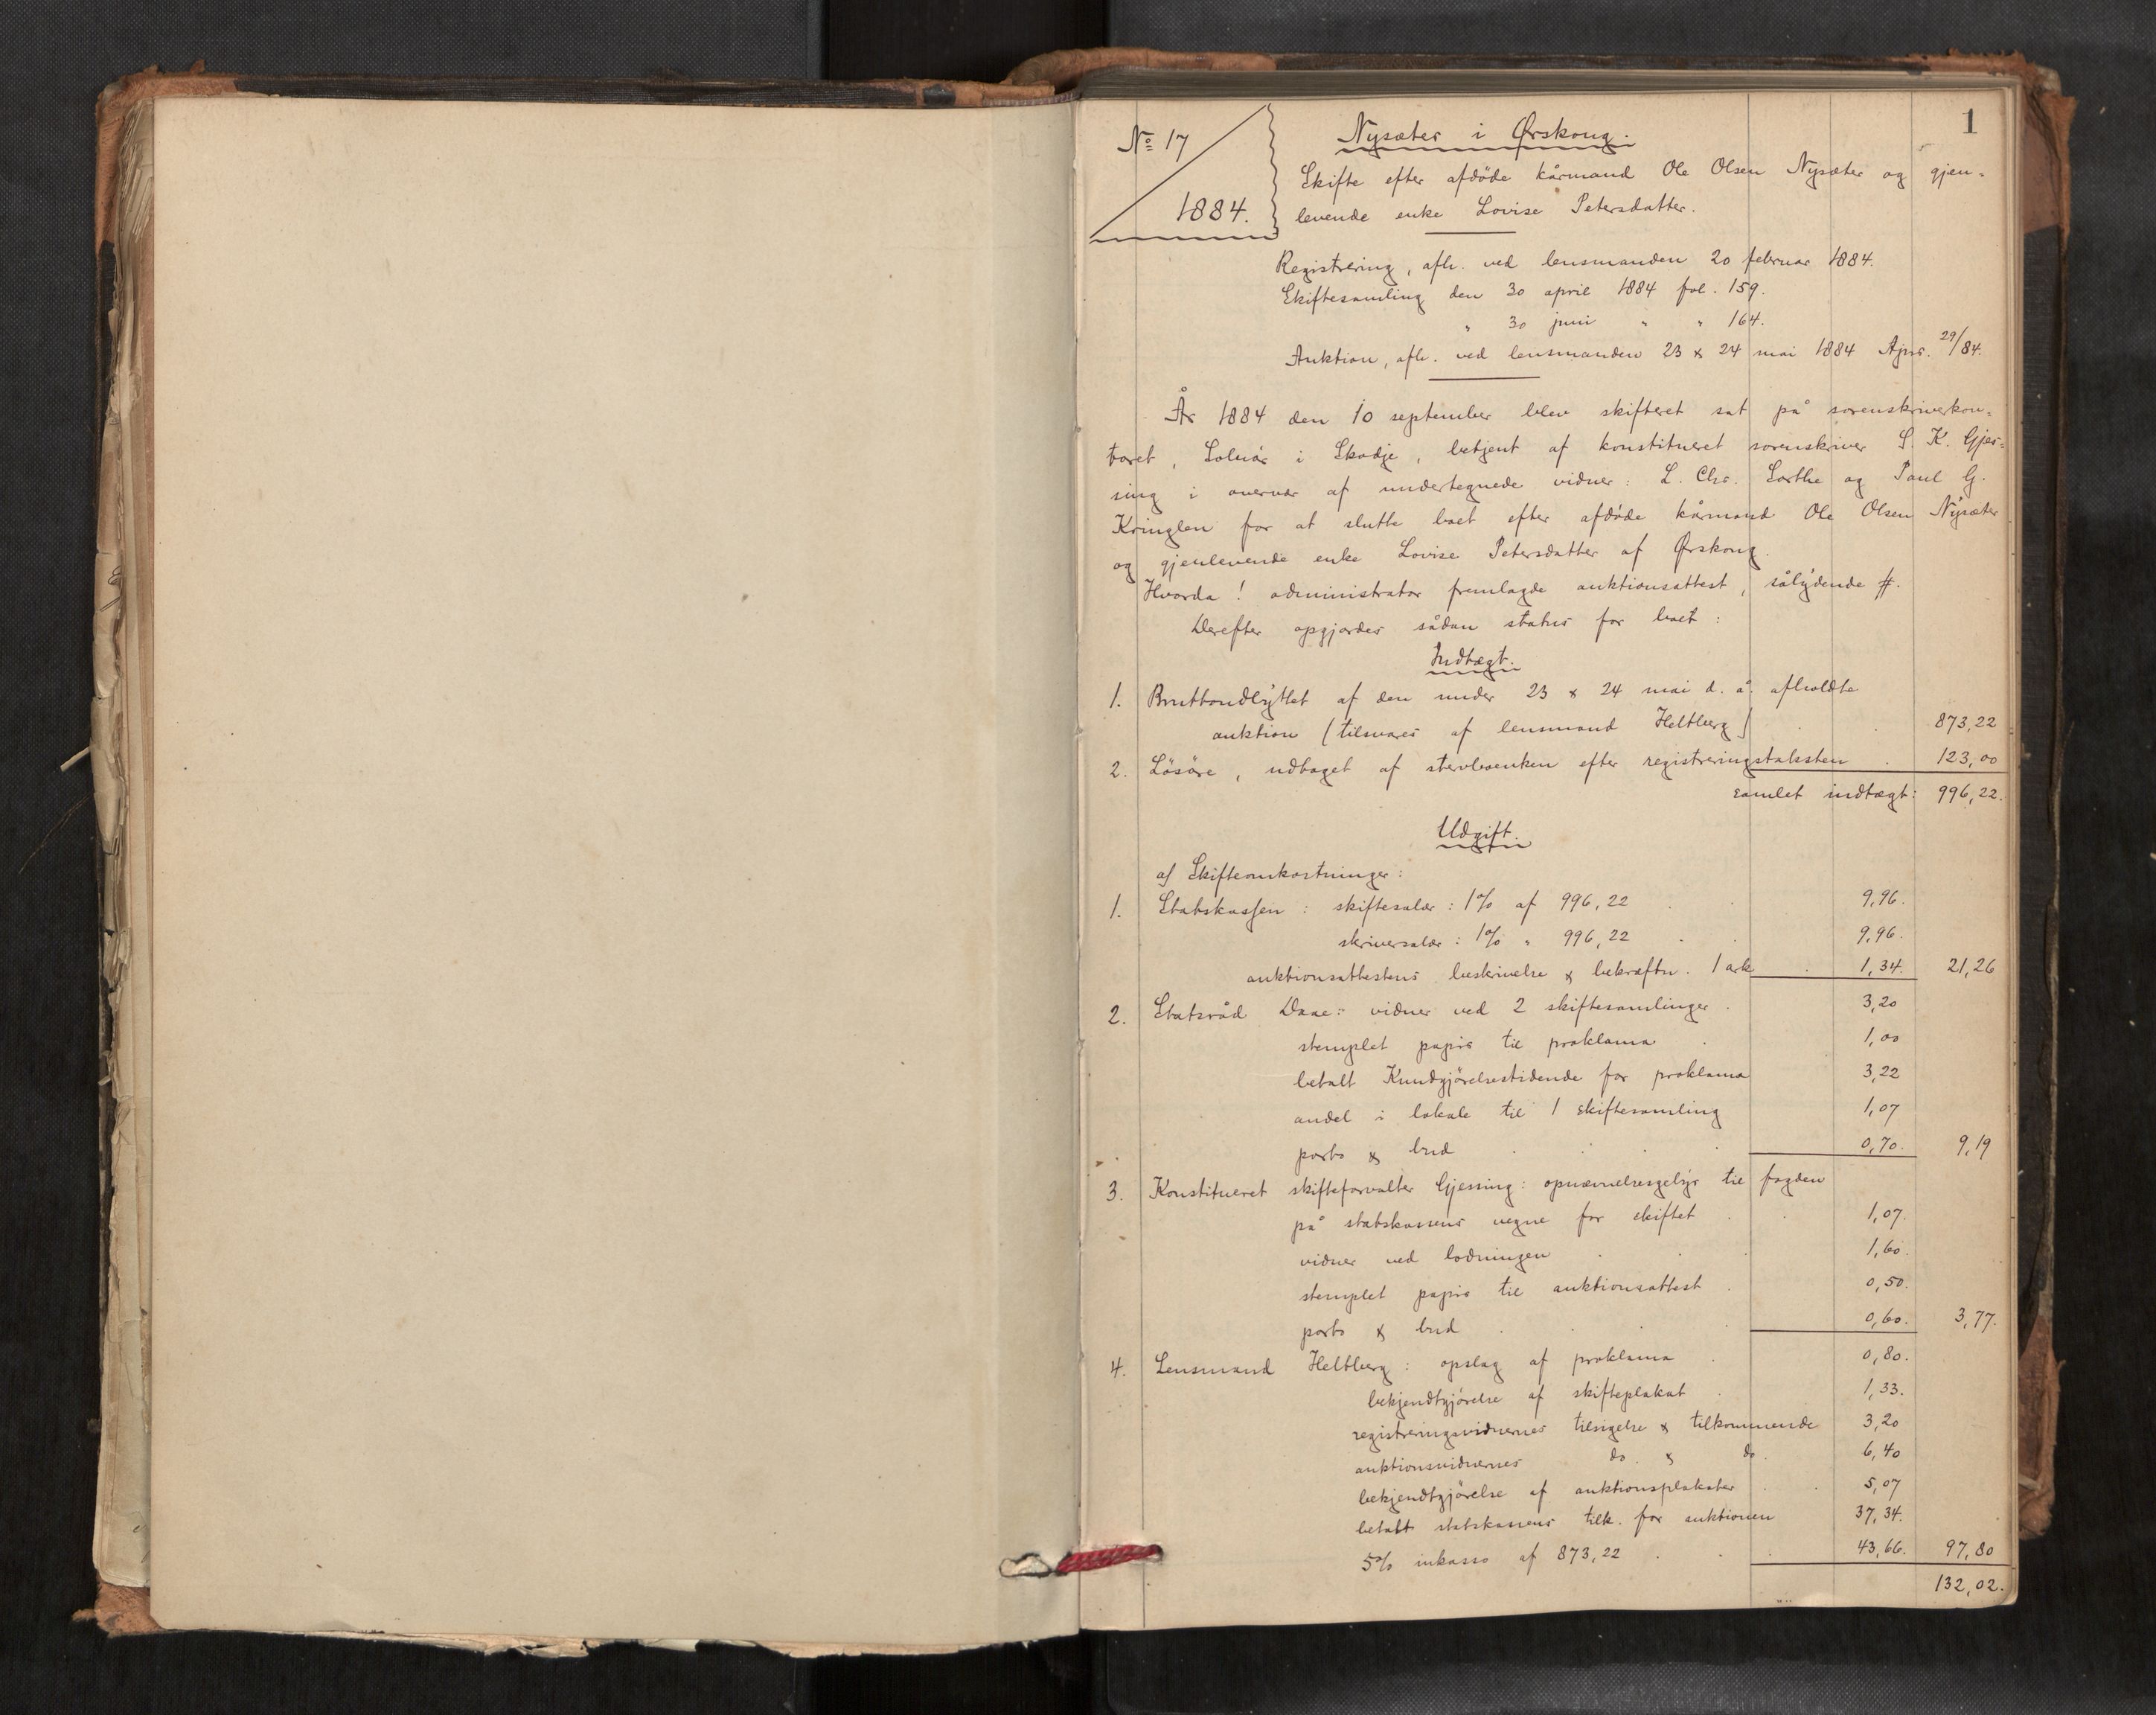 1
No 17
1884.
Nysæter i Ørskoug.
Skifte efter afdöde kårmand Ole Olsen Nysæter og gjen-
levende enke Lovise Petersdatter.
Registrering, afh. ved lensmanden 20 februar 1884.
Skiftesamling den 30 april 1884 fol. 159.
" 30 juni " " 164.
Auktion, afh. ved lensmanden 23 & 24 mai 1884 Ajrs. 29/84.
År 1884 den 10 september blev skifteret sat på sorenskriverkon-
toret, Solnör i Skodje, betjent af konstitueret sorenskriver S. K. Gjes-
sing i overvær af undertegnede vidner: L. Chr. Lorthe og Paul G.
Kringlen for at slutte boet efter afdöde kårmand Ole Olsen Nysæter
og gjenlevende enke Lovise Petersdatter af Ørskoug.
Hvorda! administrator fremlagde auktionsattest, sålydende #.
Derefter opgjordes sådan status for boet:
Indtægt.
1. Bruttoudbyttet af den under 23 & 24 mai d. å. afholdte
auktion (tilsvares af lensmand Heltberg) 873,22
2. Lösöre, udtaget af stervboenken efter registreringstaksten 123,00
samlet indtægt: 996,22.
Udgift.
a) Skifteomkostninger:
1. Statskassen: skiftesalær: 1% af 996,22 9,96.
skriversalær: 1% " 996,22 9,96.
auktionsattestens beskrivelse & bekræftn. 1 ark 1,34. 21,26
2. Statsråd Daae: vidner ved 2 skiftesamlinger 3,20
stemplet papir til proklama 1,00
betalt Kundgjörelsestidende for proklama 3,22
andel i lokale til 1 skiftesamling 1,07
porto & bud 0,70. 9,19
3. Konstitueret skifteforvalter Gjessing: opnævnelsesgebyr til fogden
på statskassens vegne for skiftet 1,07.
vidner ved lodningen 1,60.
stemplet papir til auktionsattest 0,50.
porto & bud 0,60. 3,77.
4. Lensmand Heltberg: opslag af proklama 0,80.
bekjendtgjörelse af skifteplakat 1,33.
registreringsvidnernes tilsigelse & tilkommende 3,20
auktionsvidnernes do. & do. 6,40
bekjendtgjörelse af auktionsplakater 5,07
betalt statskassens tilk. for auktionen 37,34.
5% inkasso af 873,22 43,66. 97,80
132,02.